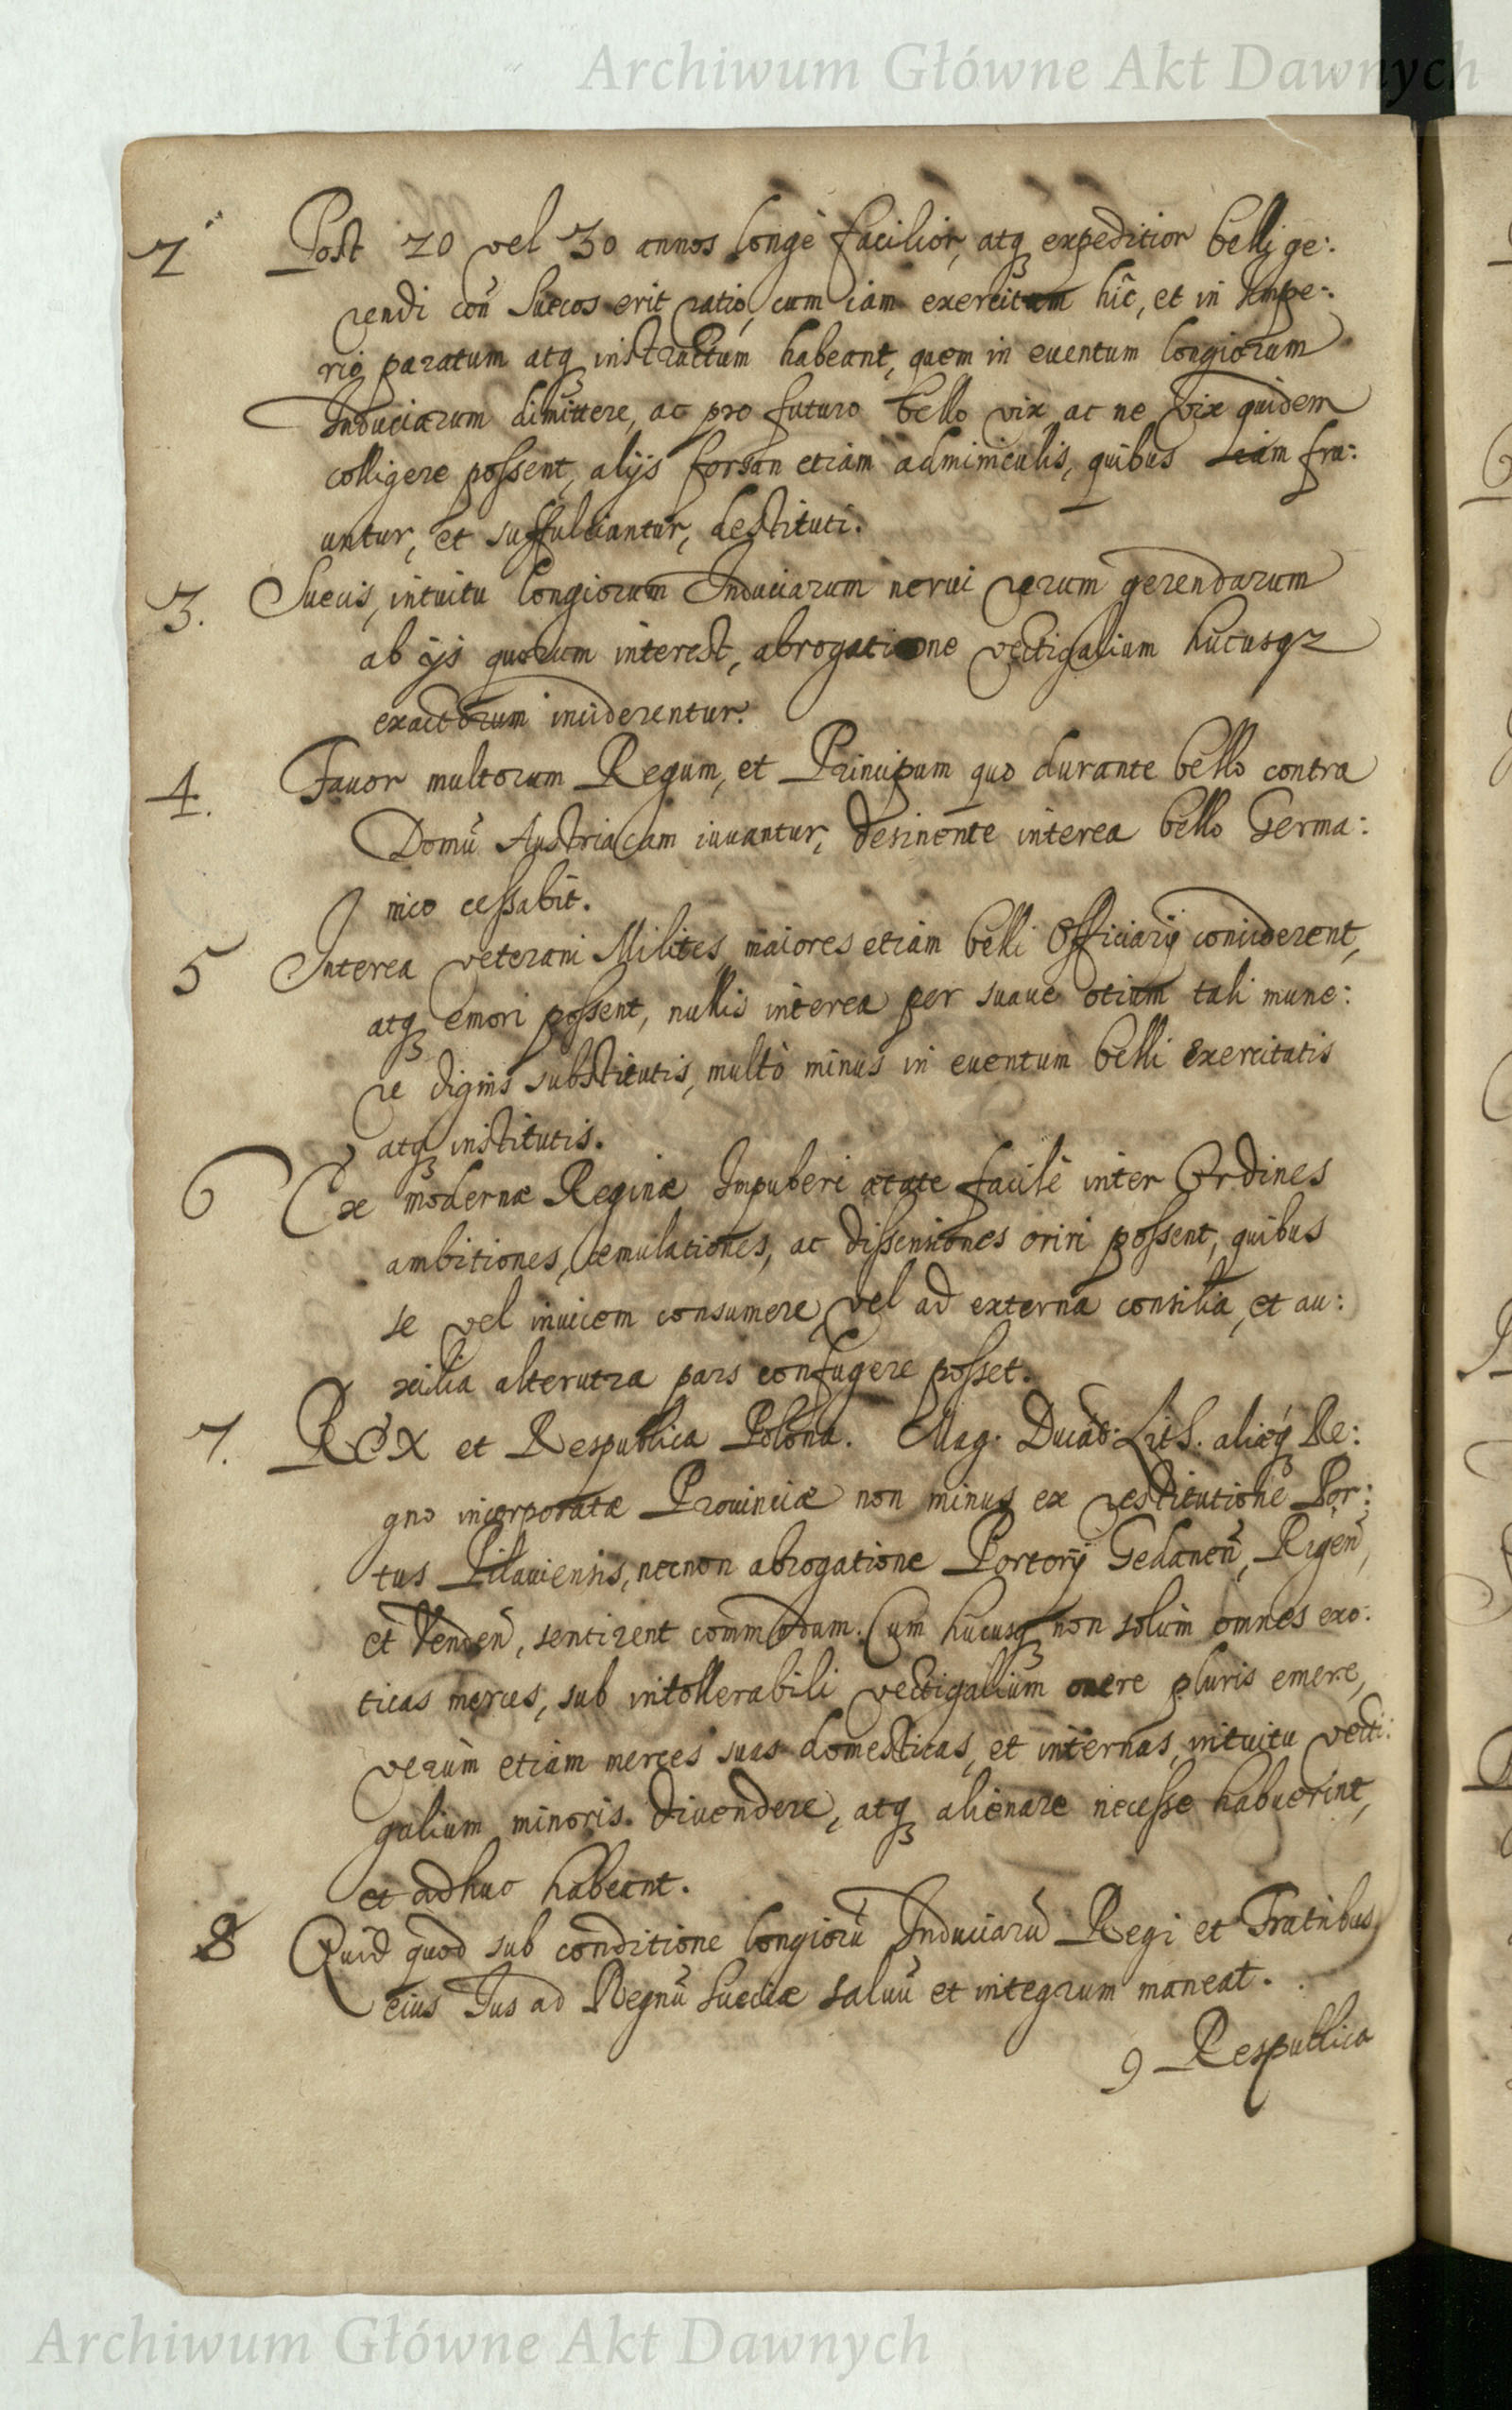 Archiwum Główne Akt Dawnych
2 Post 20 vel 30 annos longè facilior, atq₃ expeditior belli ge:
rendi con̄ Suecos erit ratio, cum iam exercitum hîc, et in Impe:
rio paratum atq₃ instructum habeant, quem in euentum longiorum
Induciarum dimittere, ac pro futuro bello vix ac ne vix quidem
colligere possent, alijs forsan etiam adminiculis, quibus iam fru:
untur, et suffulciantur, destituti.
3. Suecis, intuitu longiorum Induciarum nerui rerum gerendarum
ab ijs quorum interest, abrogatione vectigalium hucusq₃
exactorum inciderentur.
4. Fauor multorum Regum, et Principum quo durante bello contra
Domū Austriacam iuuantur, desinente interea bello Germa:
nico cessabit.
5 Interea veterani Milites, maiores etiam belli Officiarij conciderent,
atq₃ emori possent, nullis interea per suaue otium tali mune:
re dignis substitutis, multò minus in euentum belli exercitatis
atq₃ institutis.
6 Ex modernæ Reginæ Impuberi ætate facilè inter Ordines
ambitiones, æmulationes, ac dissensiones oriri possent, quibus
se vel inuicem consumere, vel ad externa consilia, et au:
xilia alterutra pars confugere posset.
7. REX et Respublica Polona. Mag. Ducat: Lith. aliæq₃ Re:
gno incorporatæ Prouinciæ non minus ex restitutione Por:
tus Pilauiensis, necnon abrogatione Portorij Gedanen̄, Rigen̄,
et Venden̄, sentirent commodum. Cum hucusq₃ non solùm omnes exo:
ticas merces, sub intollerabili vectigalium onere pluris emere,
verùm etiam merces suas domesticas, et internas, intuitu vecti:
galium minoris. diuendere, atq₃ alienare necesse habuerint,
et adhuc habeant.
8 Quid quod sub conditione longiorū Induciarū Regi et Fratribus
eius Jus ad Regnū Sueciæ saluū et integrum maneat.
9 Respublica
Archiwum Główne Akt Dawnych